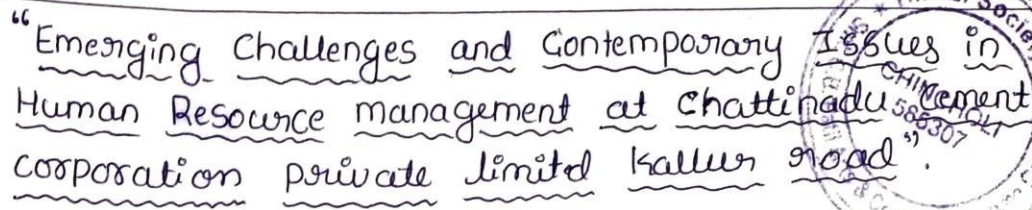 "Emerging Challenges and Contemporary Issues in
Human Resource management at Chattinadu Cement
corporation private limitd Kallur road".
CHIMMAOLI
585307